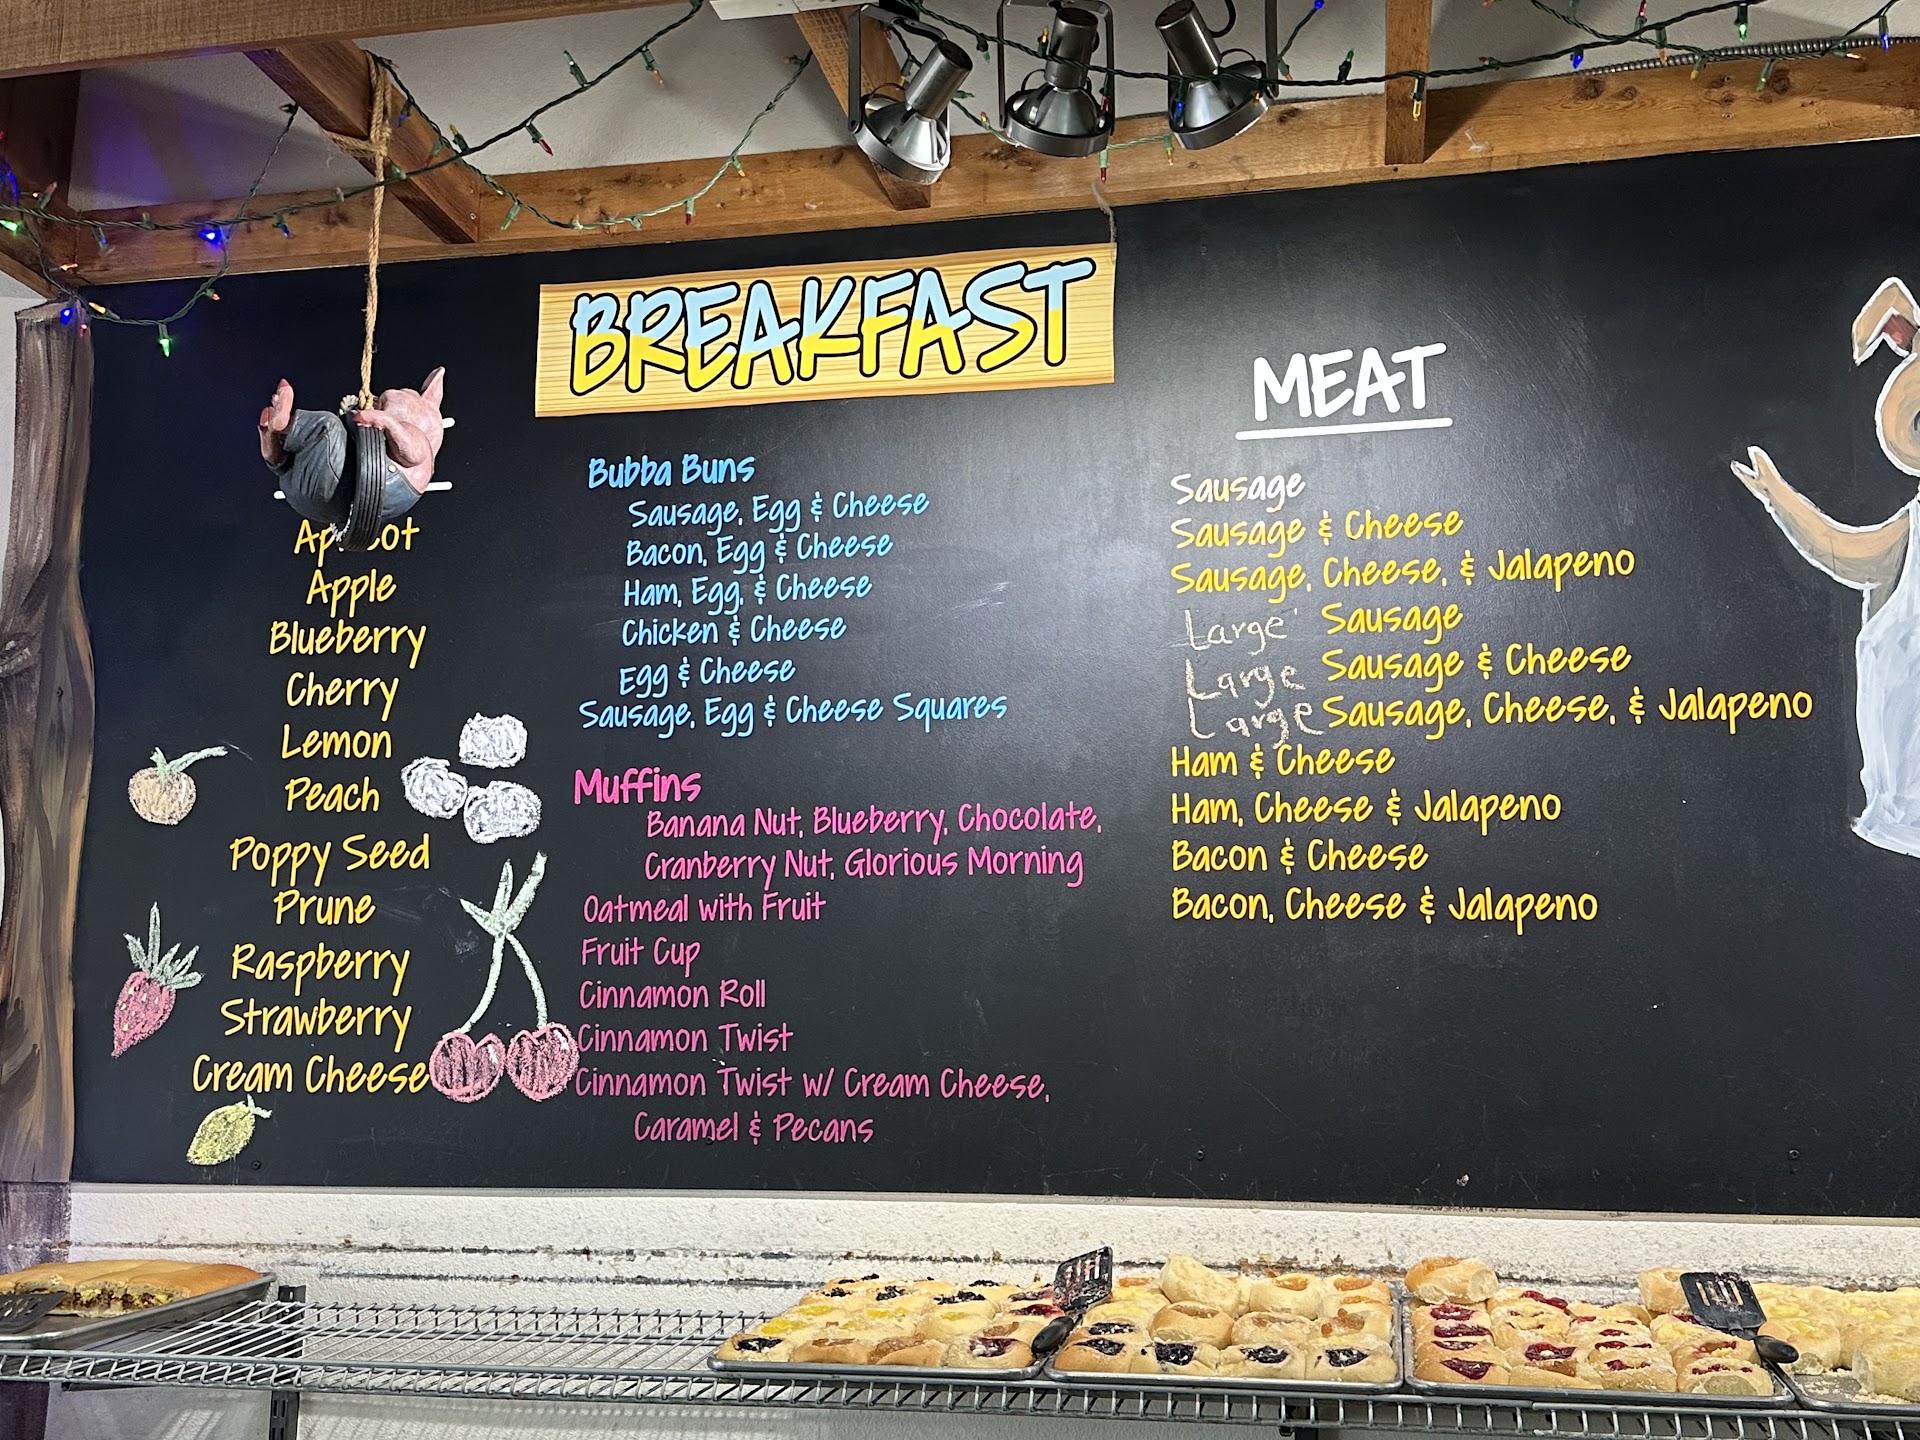 BREAKFAST
Apricot
Apple
Blueberry
Cherry
Lemon
Peach
Poppy Seed
Prune
Raspberry
Strawberry
Cream Cheese
Bubba Buns
Sausage, Egg & Cheese
Bacon, Egg & Cheese
Ham, Egg, & Cheese
Chicken & Cheese
Egg & Cheese
Sausage, Egg & Cheese Squares
Muffins
Banana Nut, Blueberry, Chocolate,
Cranberry Nut, Glorious Morning
Oatmeal with Fruit
Fruit Cup
Cinnamon Roll
Cinnamon Twist
Cinnamon Twist w/ Cream Cheese,
Caramel & Pecans
MEAT
Sausage
Sausage & Cheese
Sausage, Cheese, & Jalapeno
Large Sausage
Large Sausage & Cheese
Large Sausage, Cheese, & Jalapeno
Ham & Cheese
Ham, Cheese & Jalapeno
Bacon & Cheese
Bacon, Cheese & Jalapeno